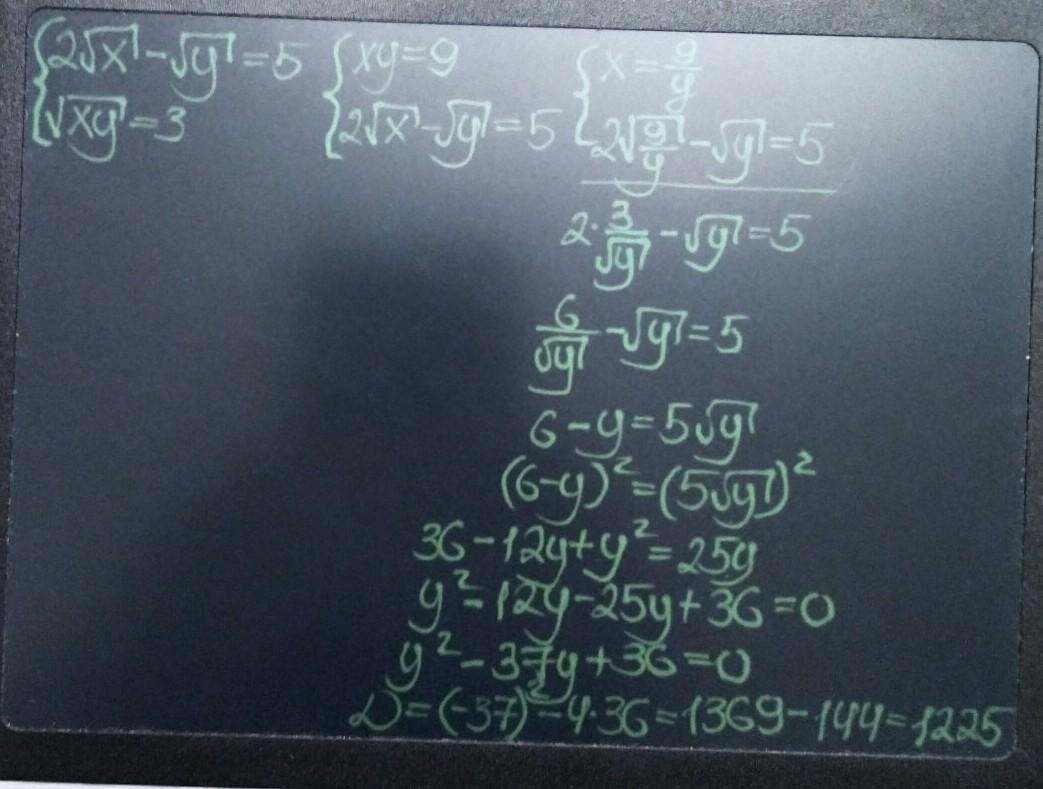 {2√x - √y = 5 {xy = 9 {x = 9/y
{√xy = 3 {2√x - √y = 5 {2√9/y - √y = 5
2·3/√y - √y = 5
6/√y - √y = 5
6 - y = 5√y
(6-y)² = (5√y)²
36 - 12y + y² = 25y
y² - 12y - 25y + 36 = 0
y² - 37y + 36 = 0
D = (-37)² - 4·36 = 1369 - 144 = 1225